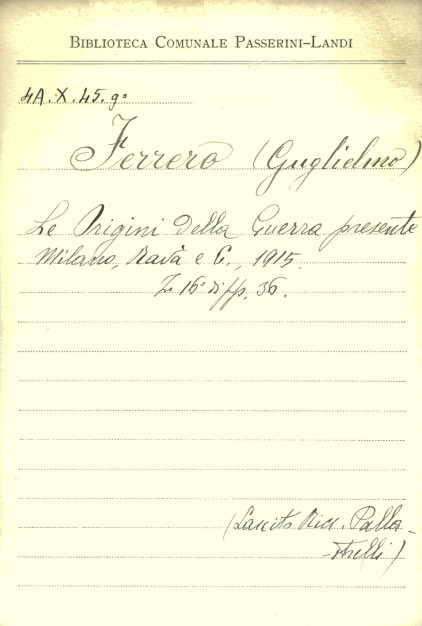 BIBLIOTECA COMUNALE PASSERINI-LANDI
4A.X.45.9º
Ferrero (Guglielmo)
Le Origini della Guerra presente
Milano, Ravà e C., 1915.
In 16º di pp. 36.
(Lascito Ricc. Palla-
-strelli)